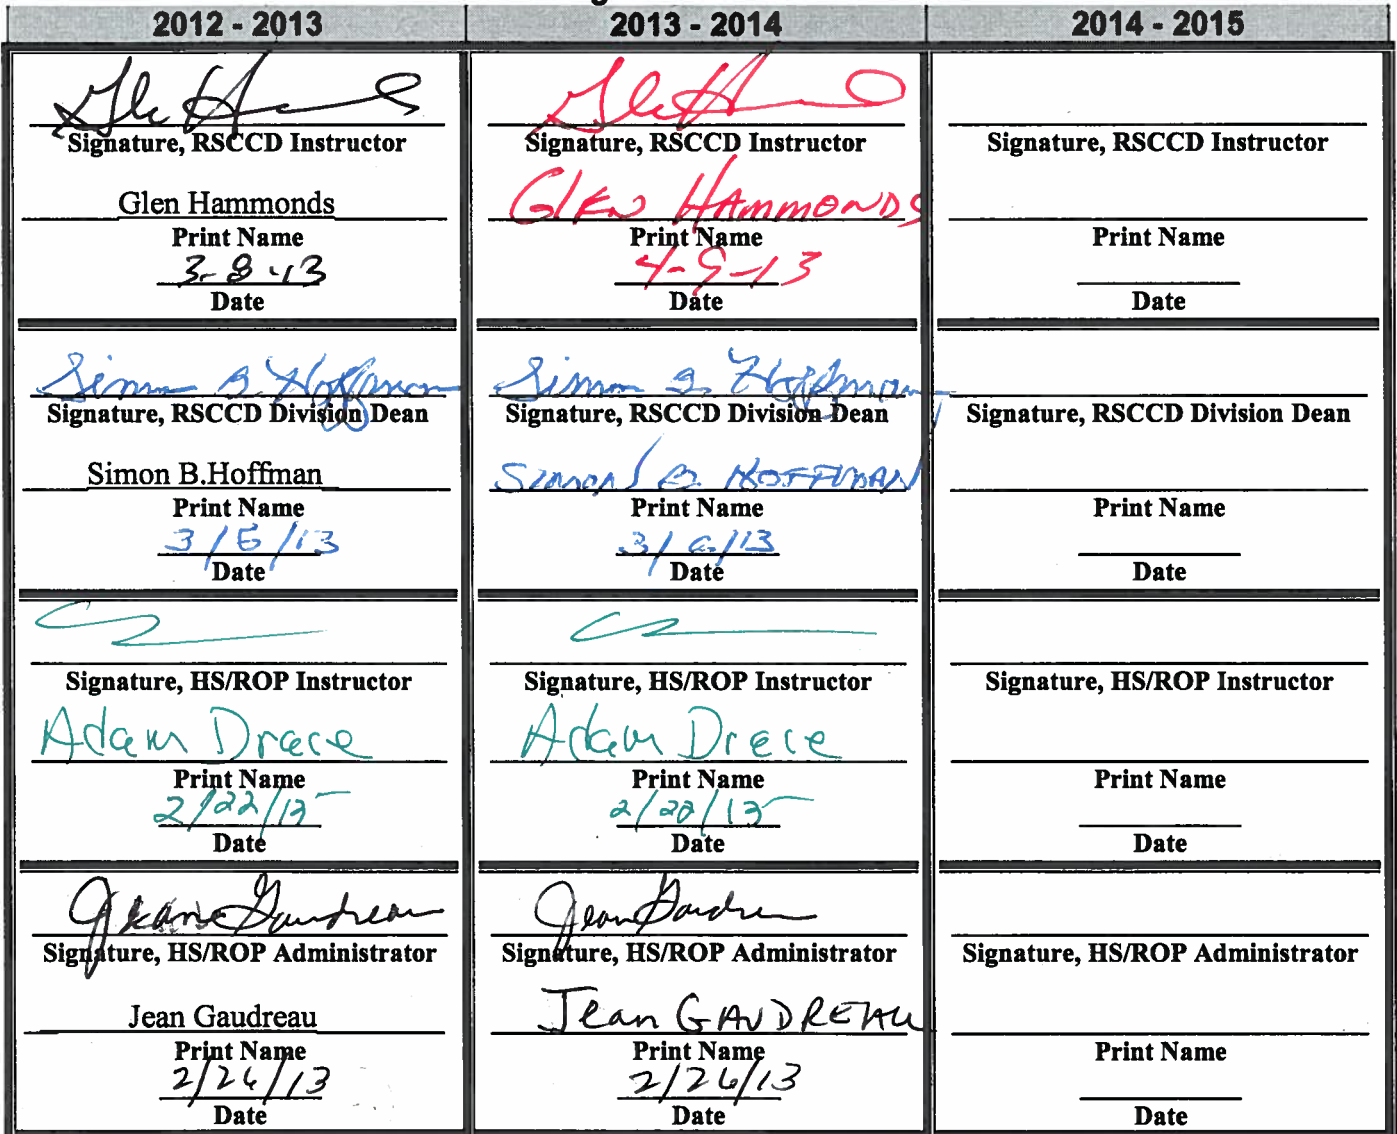 2012 - 2013
2013 - 2014
2014 - 2015
Signature, RSCCD Instructor
Glen Hammonds
Print Name
3-8-13
Date
Signature, RSCCD Instructor
Glen Hammonds
Print Name
4-9-13
Date
Signature, RSCCD Instructor
Print Name
Date
Simon B. Hoffman
Signature, RSCCD Division Dean
Simon B.Hoffman
Print Name
3/5/13
Date
Simon B. Hoffman
Signature, RSCCD Division Dean
SIMON B. HOFFMAN
Print Name
3/6/13
Date
Signature, RSCCD Division Dean
Print Name
Date
Signature, HS/ROP Instructor
Adam Drace
Print Name
2/22/13
Date
Signature, HS/ROP Instructor
Adam Drace
Print Name
2/22/13
Date
Signature, HS/ROP Instructor
Print Name
Date
Jean Gaudreau
Signature, HS/ROP Administrator
Jean Gaudreau
Print Name
2/26/13
Date
Jean Gaudreau
Signature, HS/ROP Administrator
Jean GAUDREAU
Print Name
2/26/13
Date
Signature, HS/ROP Administrator
Print Name
Date